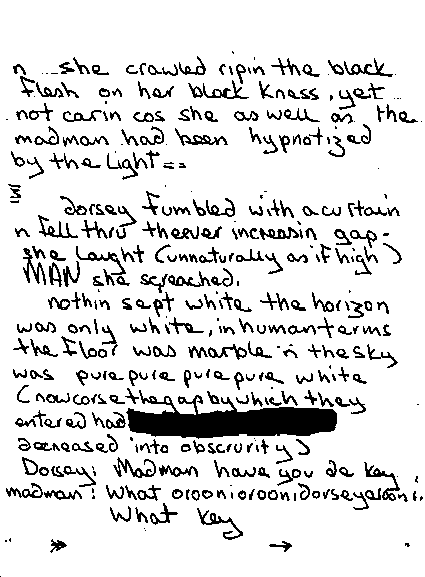 n she crawled ripin the black
flesh on her block kness, yet
not carin cos she as well as the
madman had been hypnotized
by the Light ==
dorsey fumbled with a curtain
n fell thru theever increasin gap-
she laught (unnaturally as if high)
MAN she screached.
nothin sept white the horizon
was only white, in human terms
the floor was marble n the sky
was pure pure pure pure white
(nowcorsethegapbywhich they
entered had
decreased into obscrurity)
Dorsey: Madman have you de key
madman: What orooniorooni dorsey
What key